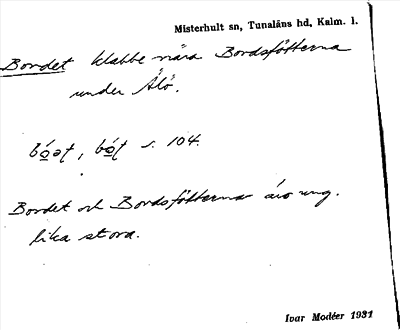 Misterhult sn, Tunaläns hd, Kalm. l.
Bordet klabbe nära Bordsfötterna
under Älö.
bo̲´ət, bo̲´t s. 104.
Bordet och Bordsfötterna äro ung.
lika stora.
Ivar Modéer 1931